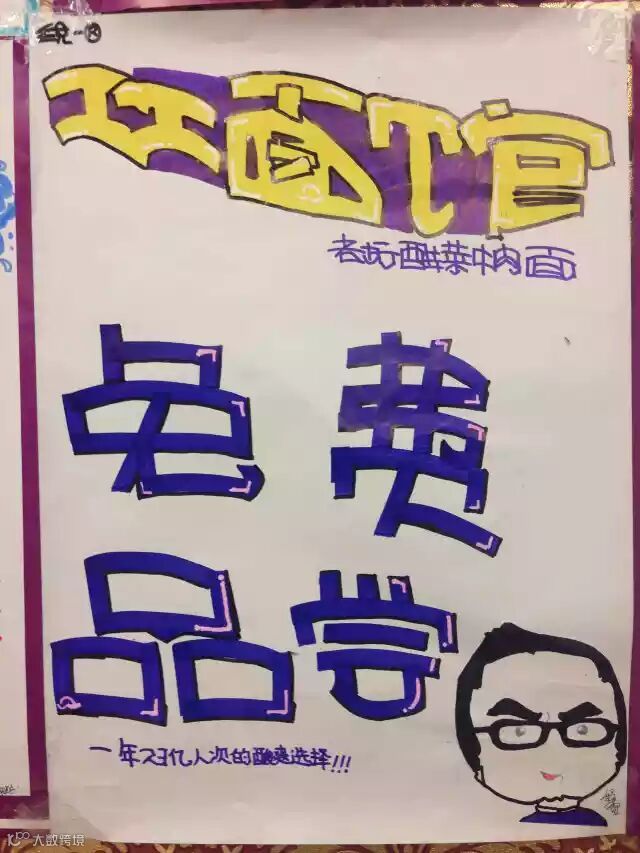 统一
巧面馆
老坛酸菜牛肉面
免费
品尝
一年23亿人次的酸爽选择!!!
大数跨境